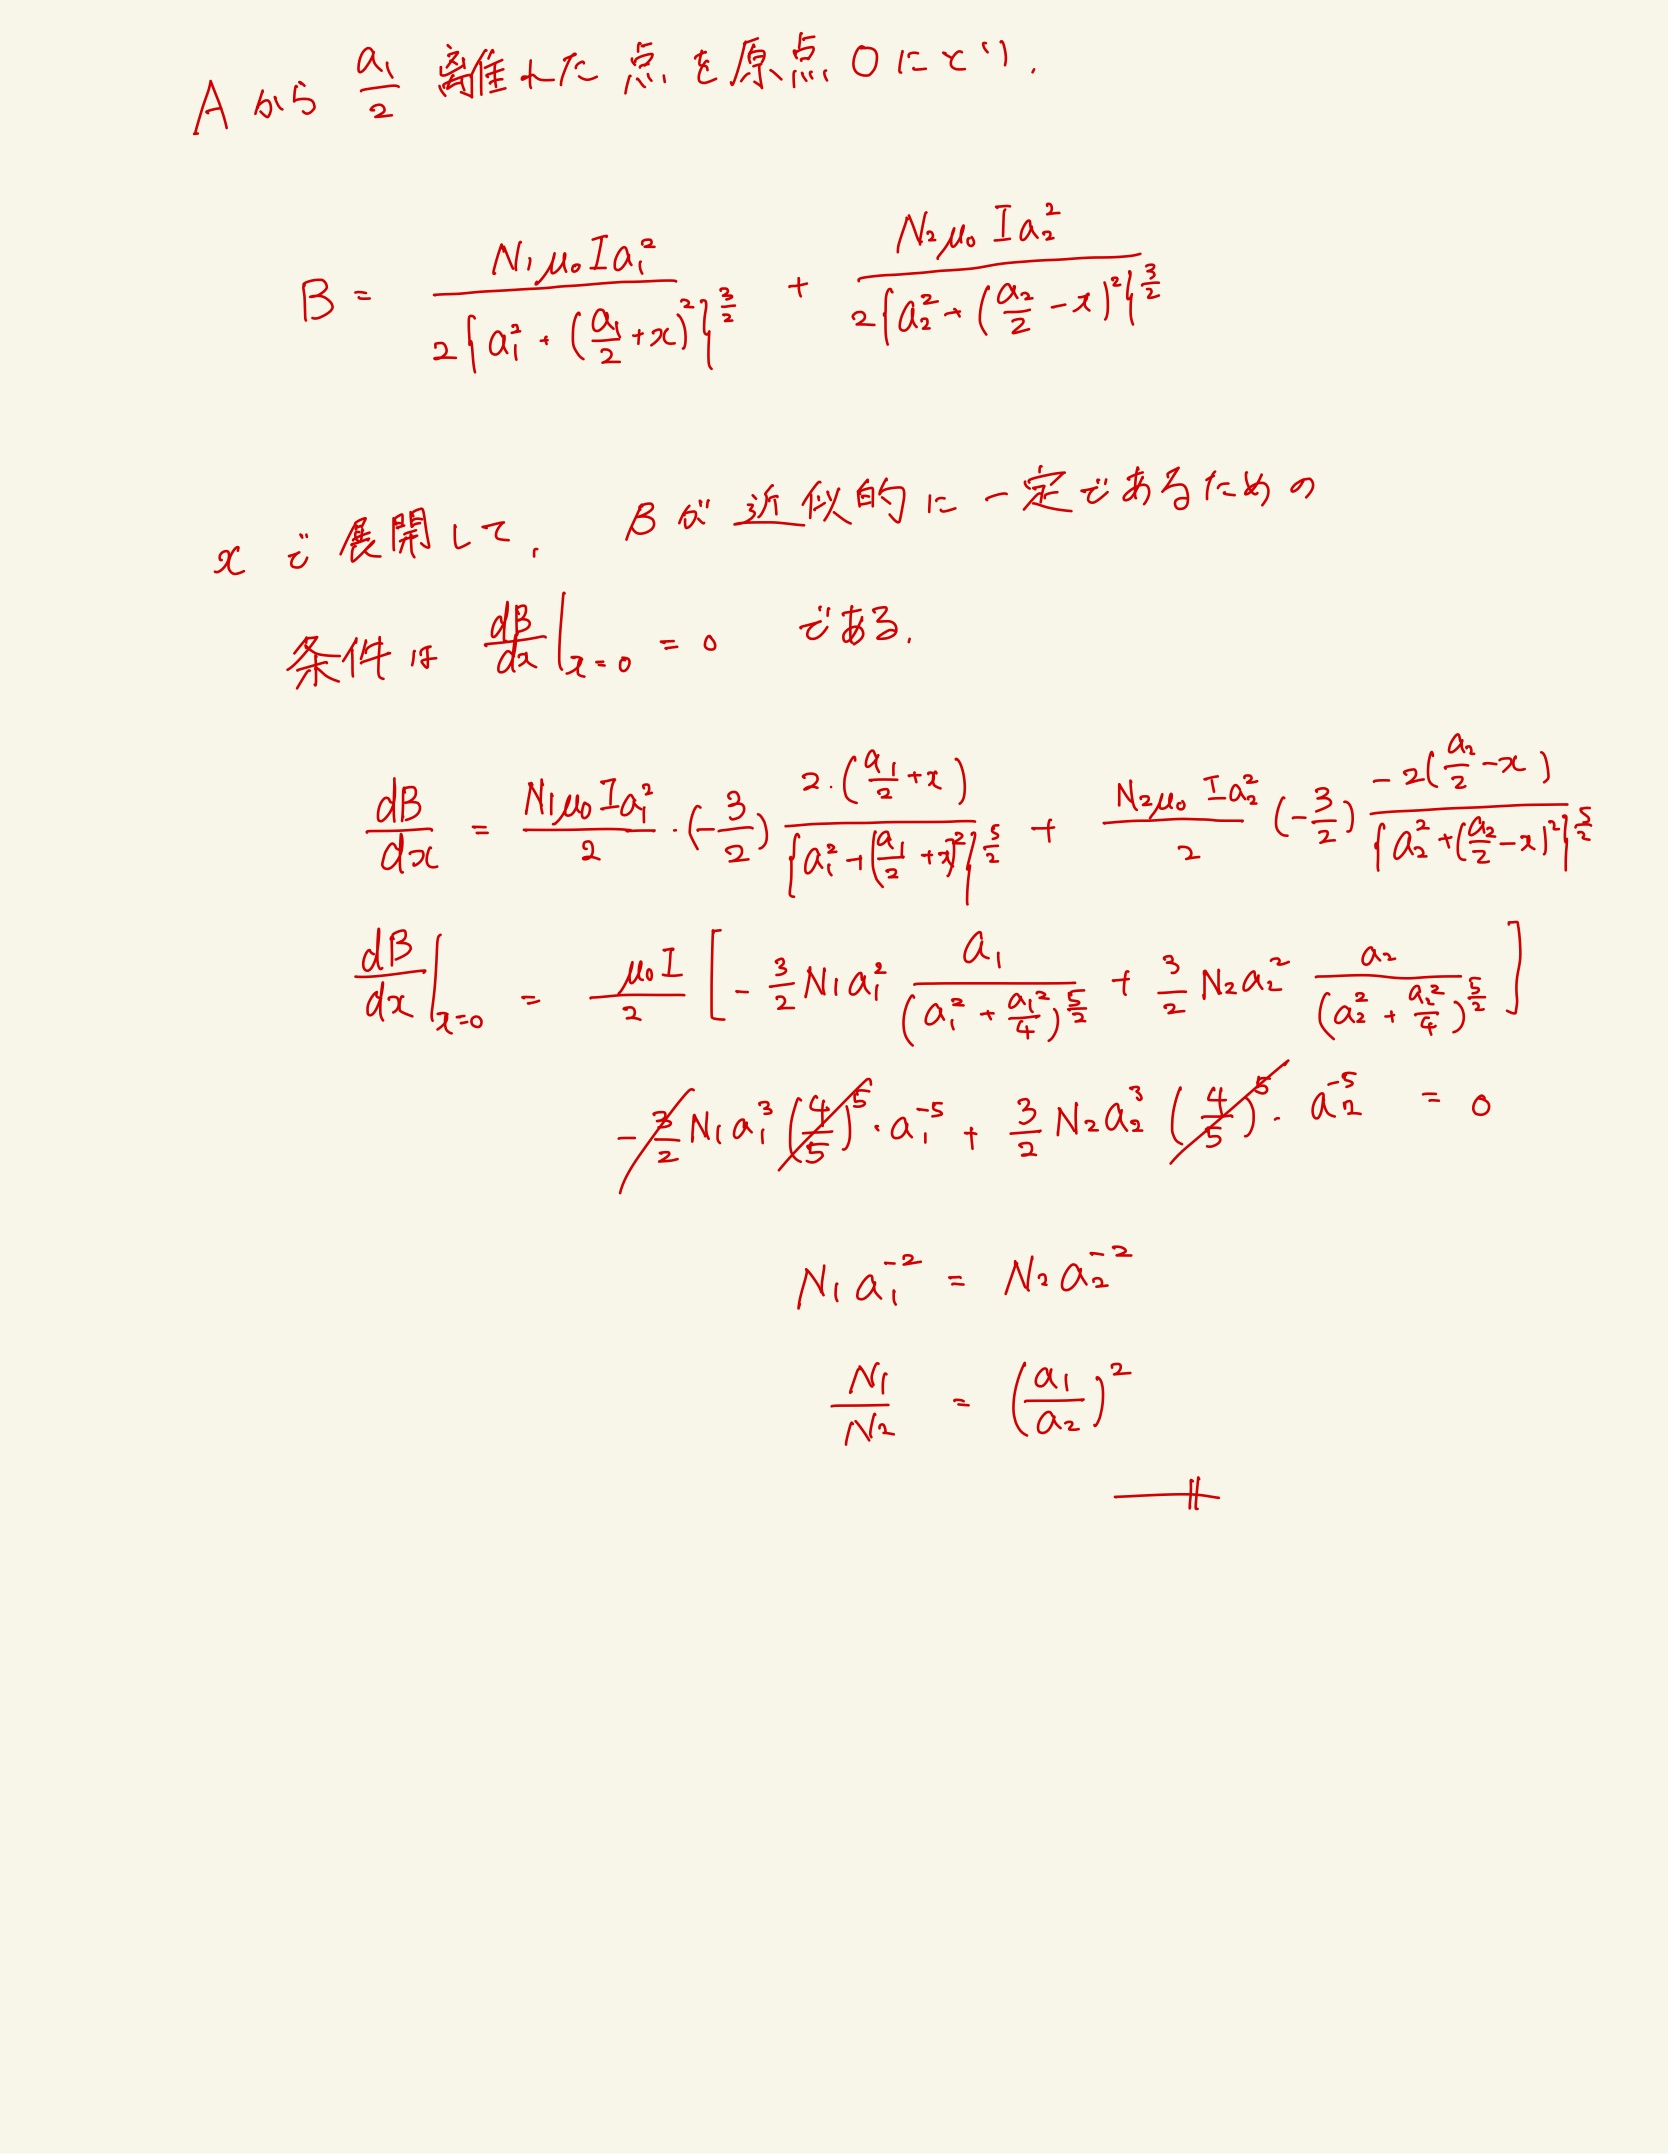 Aから a₁/2 離れた点を原点Oにとり.
B = N₁μ₀Ia₁² / 2{a₁² + (a₁/2 + x)²}^(3/2) + N₂μ₀Ia₂² / 2{a₂² + (a₂/2 - x)²}^(3/2)
xで展開して, Bが近似的に一定であるための
条件は dB/dx|x=0 = 0 である.
dB/dx = N₁μ₀Ia₁²/2 · (-3/2) 2·(a₁/2 + x) / {a₁² + (a₁/2 + x)²}^(5/2) + N₂μ₀Ia₂²/2 (-3/2) -2(a₂/2 - x) / {a₂² + (a₂/2 - x)²}^(5/2)
dB/dx|x=0 = μ₀I/2 [ -3/2 N₁a₁² a₁ / (a₁² + a₁²/4)^(5/2) + 3/2 N₂a₂² a₂ / (a₂² + a₂²/4)^(5/2) ]
-3/2 N₁a₁³ (4/5)⁵ · a₁⁻⁵ + 3/2 N₂a₂³ (4/5)⁵ · a₂⁻⁵ = 0
N₁a₁⁻² = N₂a₂⁻²
N₁/N₂ = (a₁/a₂)²